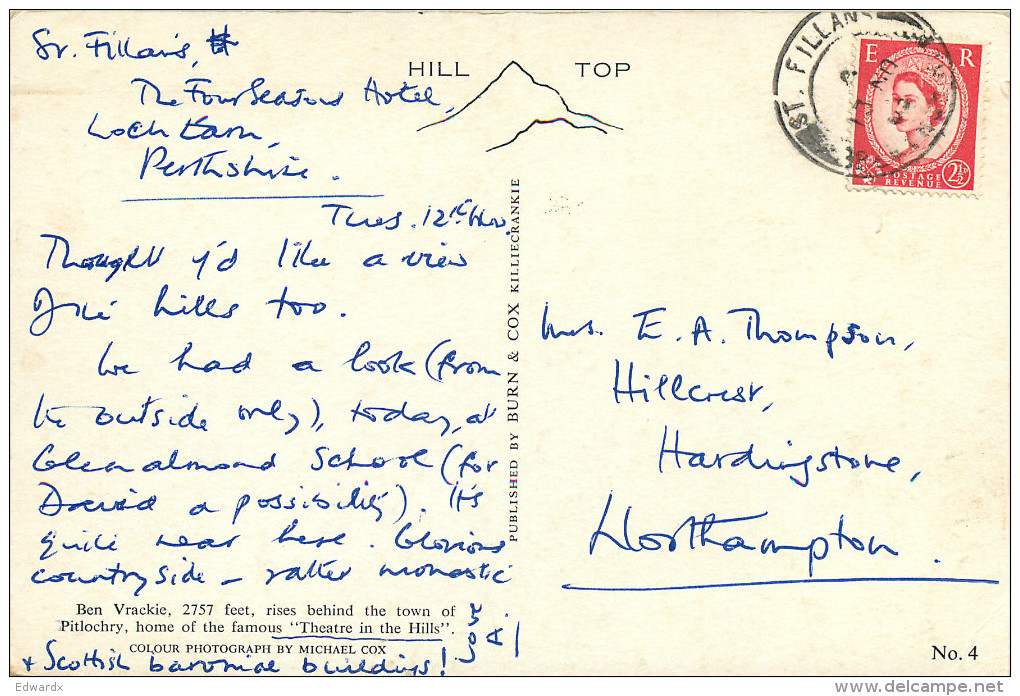 St. Fillan's,
The Four Seasons Hotel,
Loch Earn,
Perthshire.
Tues. 12th Nov.
Thought y'd like a view
of the hills too.
We had a look (from
the outside only), today, at
Glenalmond School (for
David a possibility). It's
quite near here. Glorious
countryside – rather monastic
+ Scottish baronial buildings!
Ben Vrackie, 2757 feet, rises behind the town of
Pitlochry, home of the famous "Theatre in the Hills".
COLOUR PHOTOGRAPH BY MICHAEL COX
HILL TOP
PUBLISHED BY BURN & COX KILLIECRANKIE
ST. FILLANS
E R
POSTAGE
REVENUE
2½D
Mrs. E. A. Thompson,
Hillcrest,
Hardingstone,
Northampton.
No. 4
Edwardx
delcampe.net